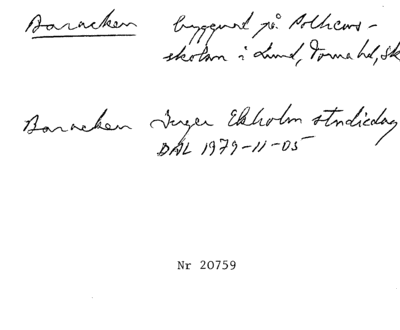 Baracken byggnad på Polhems-
skolan i Lund, Torna hd, Sk
Baracken Inger Ekholm studiedag
DAL 1979-11-05
Nr 20759